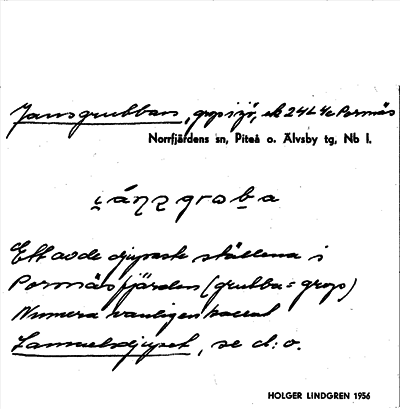 Jansgrubban, grop i sjö, ek 24L4c Pormäs
Norrfjärdens sn, Piteå o. Älvsby tg, Nb l.
Ett av de djupaste ställena i
Pormäsfjärden (grubba = grop)
Numera vanligen kallad
Lamaelsdjupet, se d:o.
HOLGER LINDGREN 1956